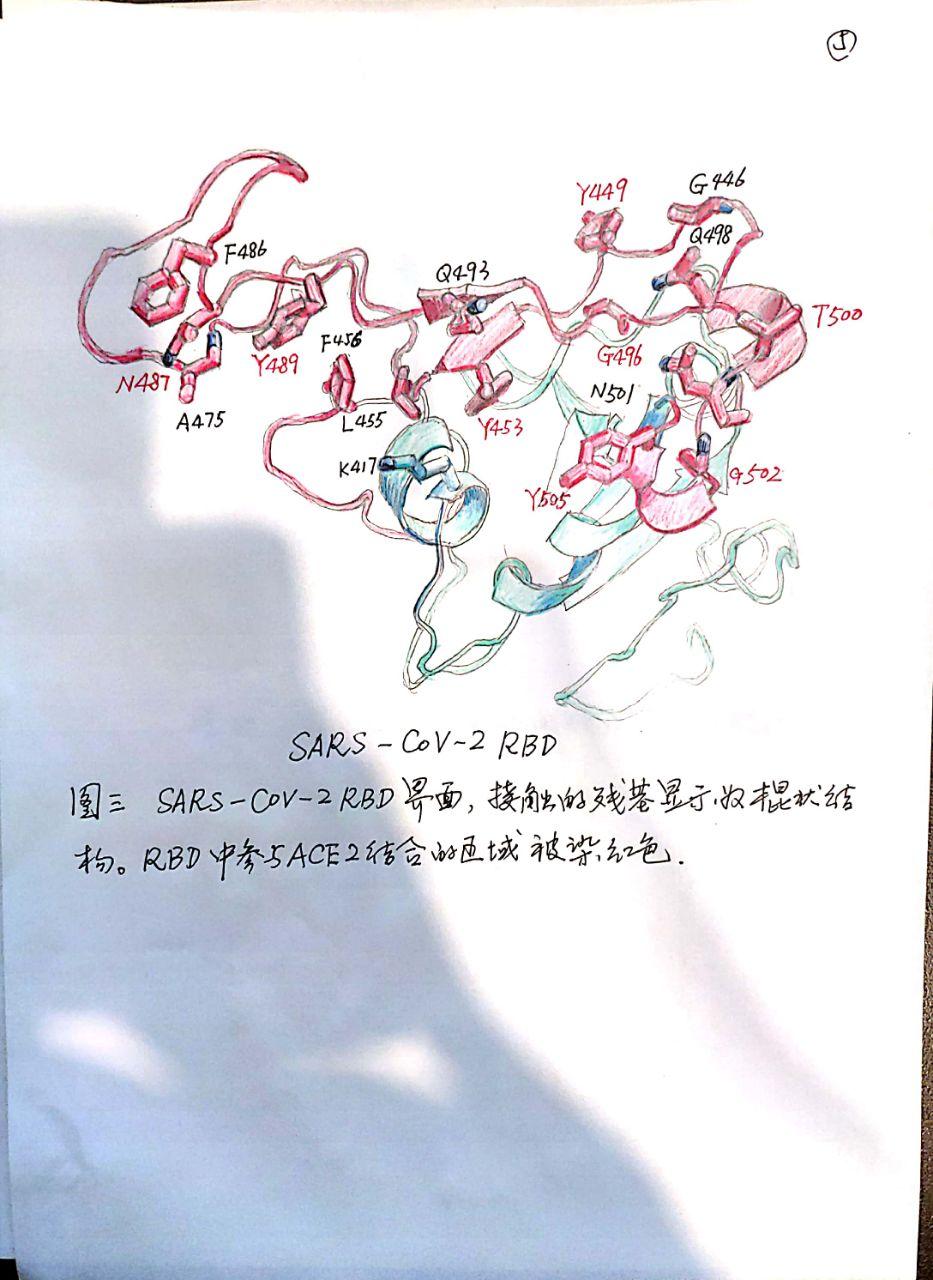 ⑤
Y449
G446
Q498
F486
Q493
T500
F456
Y489
G496
N487
N501
A475
L455
Y453
K417
Y505
G502
SARS-CoV-2 RBD
图三 SARS-CoV-2 RBD界面,接触的残基显示如棍状结
构。RBD中参与ACE2结合的区域被染红色.